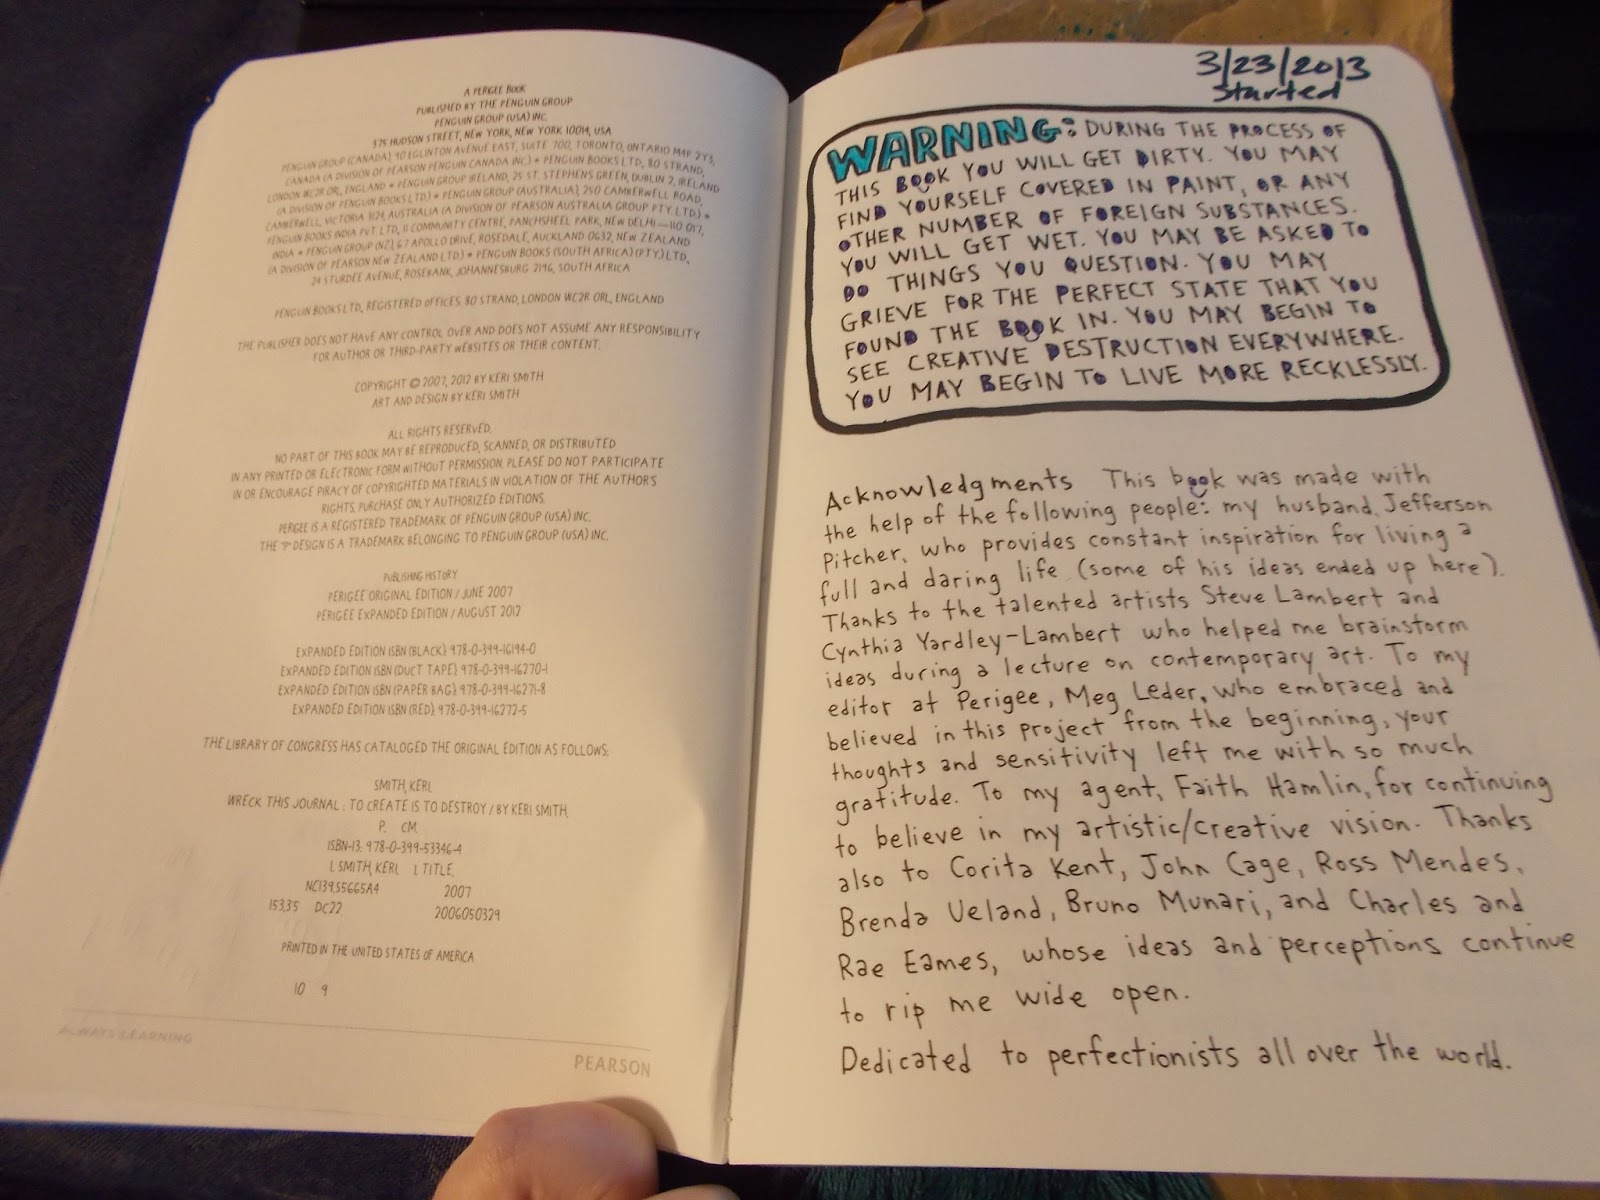 A PERIGEE BOOK
PUBLISHED BY THE PENGUIN GROUP
PENGUIN GROUP (USA) INC.
375 HUDSON STREET, NEW YORK, NEW YORK 10014, USA
PENGUIN GROUP (CANADA), 90 EGLINTON AVENUE EAST, SUITE 700, TORONTO, ONTARIO M4P 2Y3,
CANADA (A DIVISION OF PEARSON PENGUIN CANADA INC.) • PENGUIN BOOKS LTD., 80 STRAND,
LONDON WC2R ORL, ENGLAND • PENGUIN GROUP IRELAND, 25 ST. STEPHENS GREEN, DUBLIN 2, IRELAND
(A DIVISION OF PENGUIN BOOKS LTD.) • PENGUIN GROUP (AUSTRALIA), 250 CAMBERWELL ROAD,
CAMBERWELL, VICTORIA 3124, AUSTRALIA (A DIVISION OF PEARSON AUSTRALIA GROUP PTY. LTD.) •
PENGUIN BOOKS INDIA PVT. LTD., 11 COMMUNITY CENTRE, PANCHSHEEL PARK, NEW DELHI—110 017,
INDIA • PENGUIN GROUP (NZ), 67 APOLLO DRIVE, ROSEDALE, AUCKLAND 0632, NEW ZEALAND
(A DIVISION OF PEARSON NEW ZEALAND LTD.) • PENGUIN BOOKS (SOUTH AFRICA) (PTY.) LTD.,
24 STURDEE AVENUE, ROSEBANK, JOHANNESBURG 2196, SOUTH AFRICA
PENGUIN BOOKS LTD., REGISTERED OFFICES: 80 STRAND, LONDON WC2R ORL, ENGLAND
THE PUBLISHER DOES NOT HAVE ANY CONTROL OVER AND DOES NOT ASSUME ANY RESPONSIBILITY
FOR AUTHOR OR THIRD-PARTY WEBSITES OR THEIR CONTENT.
COPYRIGHT © 2007, 2012 BY KERI SMITH
ART AND DESIGN BY KERI SMITH
ALL RIGHTS RESERVED.
NO PART OF THIS BOOK MAY BE REPRODUCED, SCANNED, OR DISTRIBUTED
IN ANY PRINTED OR ELECTRONIC FORM WITHOUT PERMISSION. PLEASE DO NOT PARTICIPATE
IN OR ENCOURAGE PIRACY OF COPYRIGHTED MATERIALS IN VIOLATION OF THE AUTHOR'S
RIGHTS. PURCHASE ONLY AUTHORIZED EDITIONS.
PERIGEE IS A REGISTERED TRADEMARK OF PENGUIN GROUP (USA) INC.
THE "P" DESIGN IS A TRADEMARK BELONGING TO PENGUIN GROUP (USA) INC.
PUBLISHING HISTORY
PERIGEE ORIGINAL EDITION / JUNE 2007
PERIGEE EXPANDED EDITION / AUGUST 2012
EXPANDED EDITION ISBN (BLACK): 978-0-399-16194-0
EXPANDED EDITION ISBN (DUCT TAPE): 978-0-399-16270-1
EXPANDED EDITION ISBN (PAPER BAG): 978-0-399-16271-8
EXPANDED EDITION ISBN (RED): 978-0-399-16272-5
THE LIBRARY OF CONGRESS HAS CATALOGED THE ORIGINAL EDITION AS FOLLOWS:
SMITH, KERI.
WRECK THIS JOURNAL : TO CREATE IS TO DESTROY / BY KERI SMITH.
P. CM.
ISBN-13: 978-0-399-53346-4
1. SMITH, KERI. I. TITLE.
NC139.S5665A4 2007
153.3'5 DC22 2006050329
PRINTED IN THE UNITED STATES OF AMERICA
10 9
ALWAYS LEARNING
PEARSON
3/23/2013
Started
WARNING: DURING THE PROCESS OF
THIS BOOK YOU WILL GET DIRTY. YOU MAY
FIND YOURSELF COVERED IN PAINT, OR ANY
OTHER NUMBER OF FOREIGN SUBSTANCES.
YOU WILL GET WET. YOU MAY BE ASKED TO
DO THINGS YOU QUESTION. YOU MAY
GRIEVE FOR THE PERFECT STATE THAT YOU
FOUND THE BOOK IN. YOU MAY BEGIN TO
SEE CREATIVE DESTRUCTION EVERYWHERE.
YOU MAY BEGIN TO LIVE MORE RECKLESSLY.
Acknowledgments This book was made with
the help of the following people: my husband, Jefferson
Pitcher, who provides constant inspiration for living a
full and daring life (some of his ideas ended up here).
Thanks to the talented artists Steve Lambert and
Cynthia Yardley-Lambert who helped me brainstorm
ideas during a lecture on contemporary art. To my
editor at Perigee, Meg Leder, who embraced and
believed in this project from the beginning, your
thoughts and sensitivity left me with so much
gratitude. To my agent, Faith Hamlin, for continuing
to believe in my artistic/creative vision. Thanks
also to Corita Kent, John Cage, Ross Mendes,
Brenda Ueland, Bruno Munari, and Charles and
Rae Eames, whose ideas and perceptions continue
to rip me wide open.
Dedicated to perfectionists all over the world.